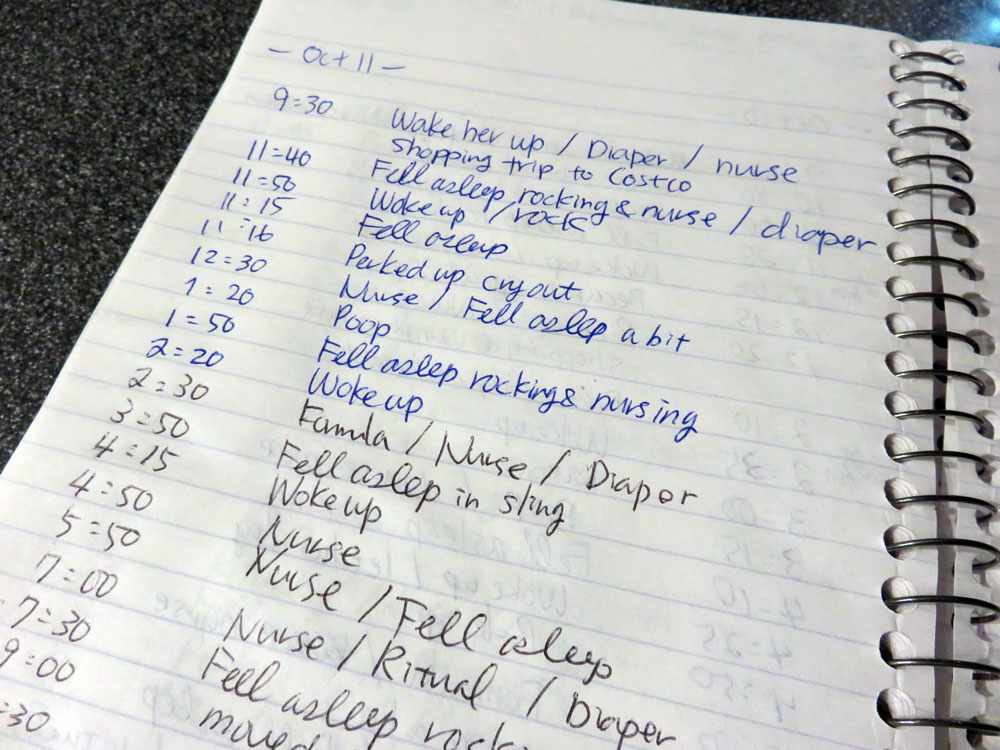 - Oct 11 -
9:30 Wake her up / Diaper / nurse
shopping trip to Costco
11:40 Fell asleep rocking & nurse / diaper
11:50 Woke up / rock
11:15 Fell asleep
11:16 Perked up cry out
12:30 Nurse / Fell asleep a bit
1:20 Poop
1:50 Fell asleep rocking & nursing
2:20 Woke up
2:30 Famula / Nurse / Diaper
3:50 Fell asleep in sling
4:15 Woke up
4:50 Nurse
5:50 Nurse / Fell asleep
7:00 Nurse / Ritual / Diaper
7:30 Fell asleep
9:00 moved
:30